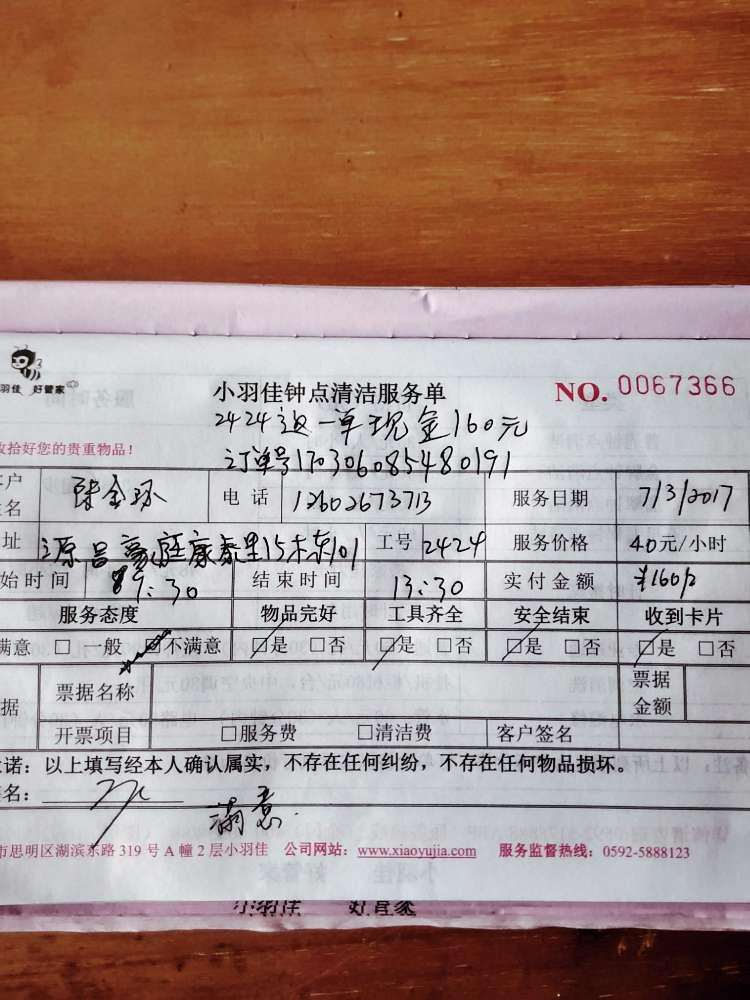 羽佳 好管家
小羽佳钟点清洁服务单 NO. 0067366
2424这一单现金160元
收拾好您的贵重物品！
订单号170306085480191
客户姓名 陆金环 电话 12602673713 服务日期 7/3/2017
址 源昌豪庭康泰里15未东101 工号 2424 服务价格 40元/小时
始时间 9:30 结束时间 13:30 实付金额 ¥160元
服务态度 物品完好 工具齐全 安全结束 收到卡片
满意 □一般 □不满意 □是 □否 □是 □否 □是 □否 □是 □否
据 票据名称 票据金额
开票项目 □服务费 □清洁费 客户签名
诺：以上填写经本人确认属实，不存在任何纠纷，不存在任何物品损坏。
名：
满意.
市思明区湖滨东路 319 号 A 幢 2 层小羽佳 公司网站：www.xiaoyujia.com 服务监督热线：0592-5888123
小羽佳 好管家